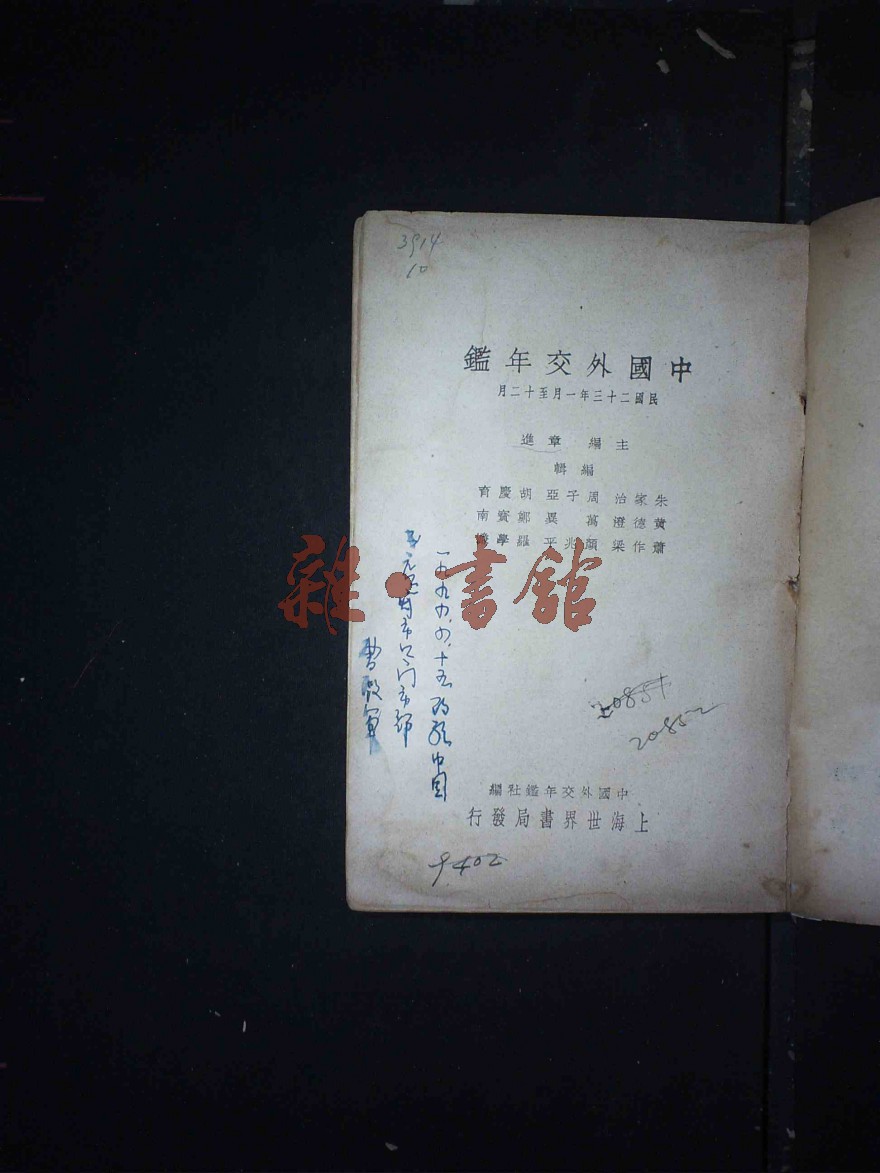 3914
10
中國外交年鑑
民國二十三年一月至十二月
主編 章進
編輯
朱家治 周子亞 胡慶育
黃德澄 萬異 鄭寶南
蕭作梁 顏兆平 羅學
雜·書館
一九九九.六.十五 购於中国
市口门市部
曹
20851
20852
中國外交年鑑社編
上海世界書局發行
9402